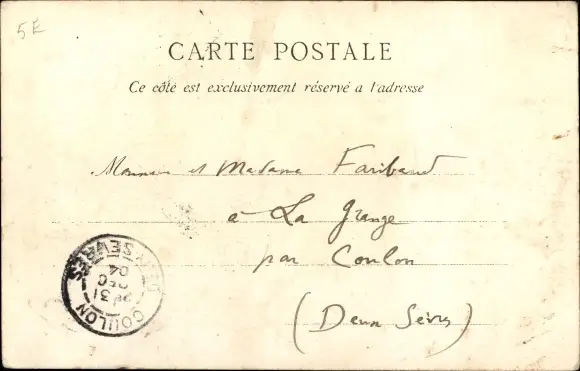 5E
CARTE POSTALE
Ce côté est exclusivement réservé a l'adresse
Monsieur et Madame Faribaud
à La Grange
par Coulon
(Deux Sèvres)
COULON
31
DEC
04
SÈVRES